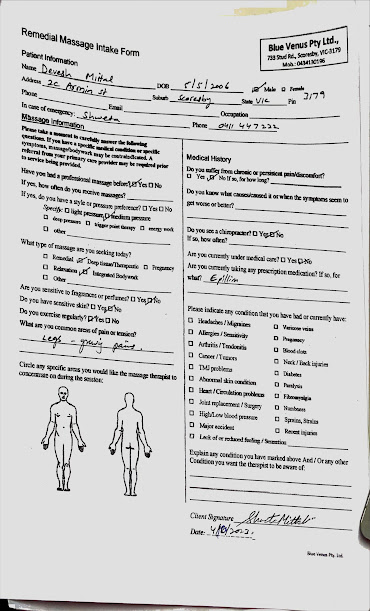 Remedial Massage Intake Form
Blue Venus Pty Ltd.,
733 Stud Rd., Scoresby, VIC-3179
Mob.: 0434130196
Patient Information
Name Devesh Mittal DOB 5/5/2006 Male Female
Address 20 Armin st Suburb Scoresby State VIC Pin 3179
Phone Email Occupation
In case of emergency: Shweta Phone 0411 447222
Massage Information
Please take a moment to carefully answer the following
questions. If you have a specific medical condition or specific
symptoms, massage/bodywork may be contraindicated. A
referral from your primary care provider may be required prior
to service being provided.
Have you had a professional massage before? Yes No
If yes, how often do you receive massages?
If yes, do you have a style or pressure preference? Yes No
Specific: light pressure medium pressure
deep pressure trigger point therapy energy work
other
What type of massage are you seeking today?
Remedial Deep tissue/Therapeutic Pregnancy
Relaxation Integrated Bodywork
Other
Are you sensitive to fragrances or perfumes? Yes No
Do you have sensitive skin? Yes No
Do you exercise regularly? Yes No
What are you common areas of pain or tension?
Legs - pain.
Circle any specific areas you would like the massage therapist to
concentrate on during the session:
Medical History
Do you suffer from chronic or persistent pain/discomfort?
Yes No If so, for how long?
Do you know what causes/caused it or when the symptoms seem to
get worse or better?
Do you see a chiropractor? Yes No
If so, how often?
Are you currently under medical care? Yes No
Are you currently taking any prescription medication? If so, for
what? Epilim
Please indicate any condition that you have had or currently have:
Headaches / Migraines Varicose veins
Allergies / Sensitivity Pregnancy
Arthritis / Tendonitis Blood clots
Cancer / Tumors Neck / Back injuries
TMJ problems Diabetes
Abnormal skin condition Paralysis
Heart / Circulation problems Fibromyalgia
Joint replacement / Surgery Numbness
High/Low blood pressure Sprains, Strains
Major accident Recent injuries
Lack of or reduced feeling / Sensation
Explain any condition you have marked above And / Or any other
Condition you want the therapist to be aware of:
Client Signature
Date:
Blue Venus Pty. Ltd.